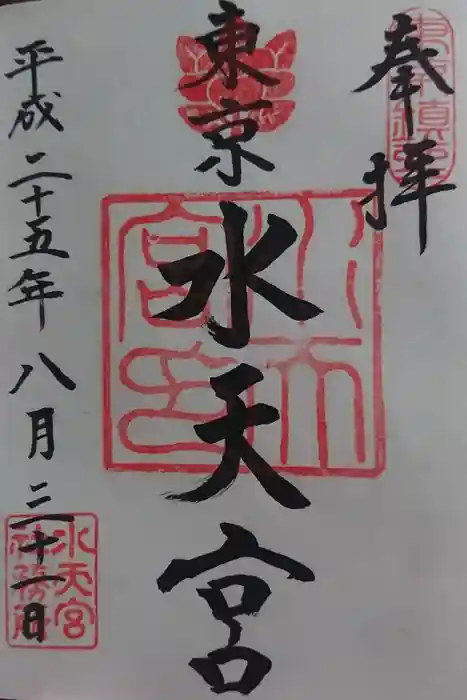 奉拝
東京水天宮
平成二十五年八月三十一日
水天宮
社務所
水天
宮印